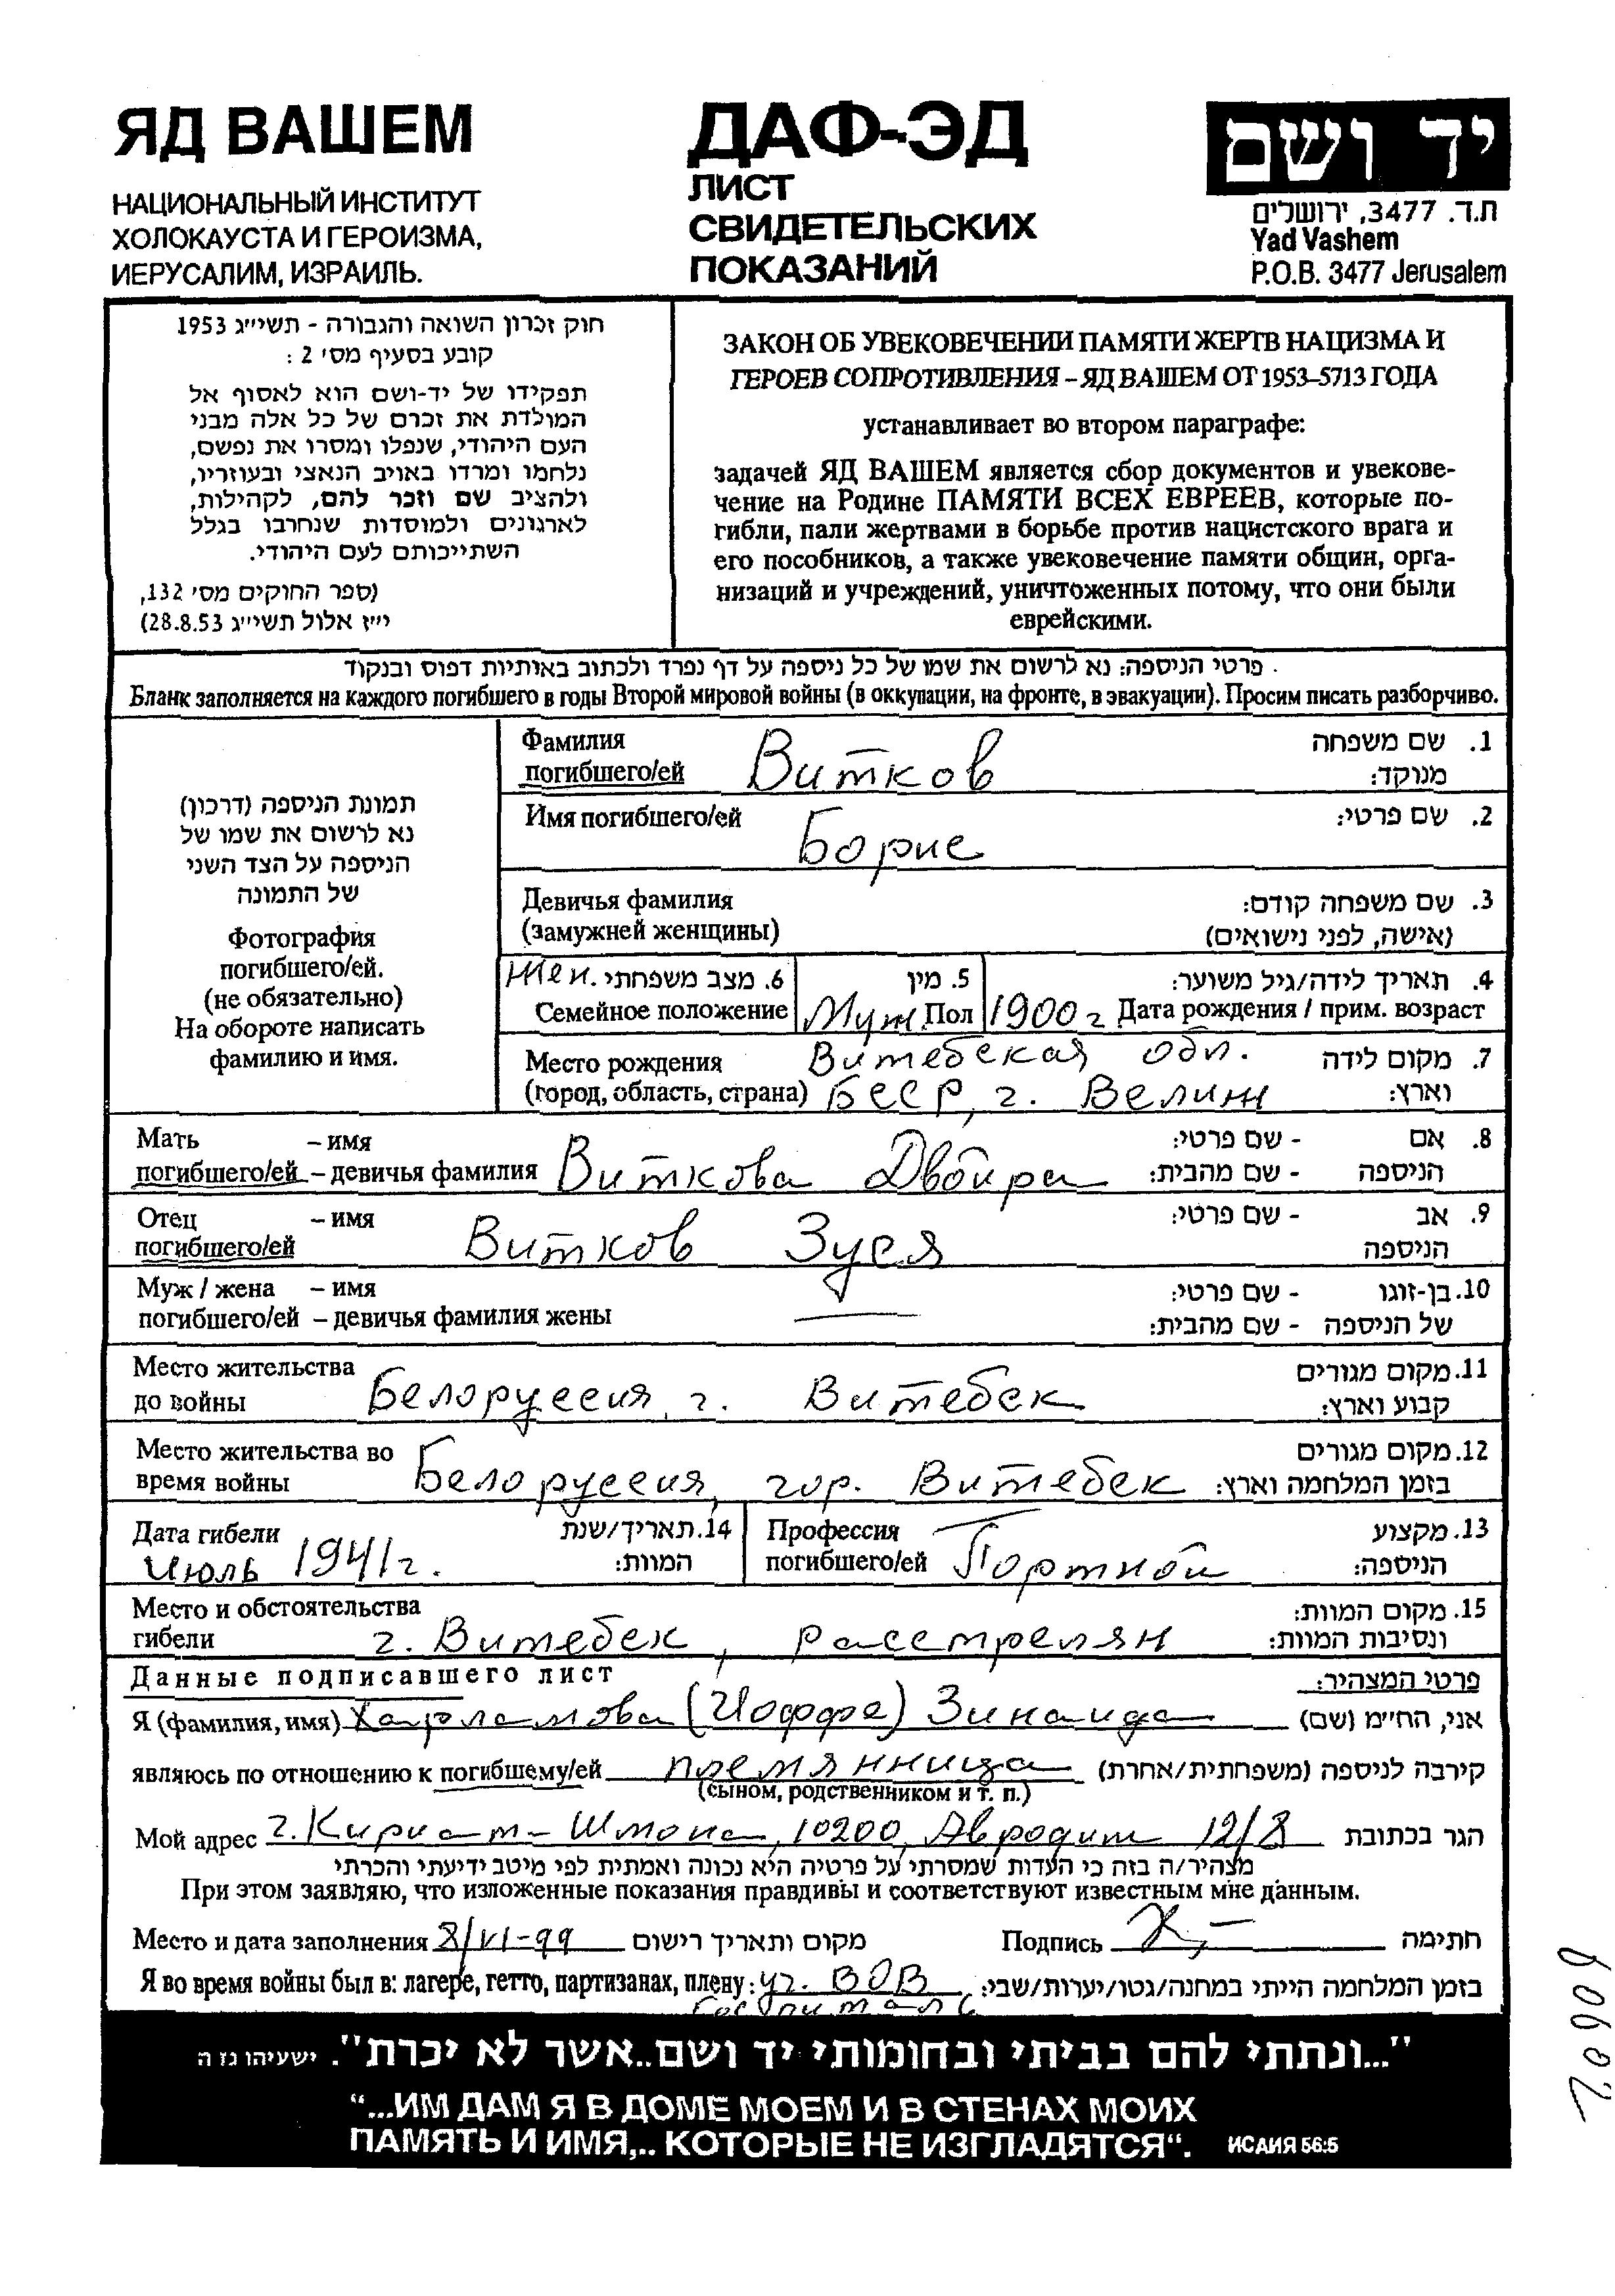 ЯД ВАШЕМ
НАЦИОНАЛЬНЫЙ ИНСТИТУТ
ХОЛОКАУСТА И ГЕРОИЗМА,
ИЕРУСАЛИМ, ИЗРАИЛЬ.
ДАФ-ЭД
ЛИСТ
СВИДЕТЕЛЬСКИХ
ПОКАЗАНИЙ
יד ושם
ת.ד. 3477, ירושלים
Yad Vashem
P.O.B. 3477 Jerusalem
חוק זכרון השואה והגבורה - תשי״ג 1953
קובע בסעיף מס׳ 2 :
תפקידו של יד-ושם הוא לאסוף אל
המולדת את זכרם של כל אלה מבני
העם היהודי, שנפלו ומסרו את נפשם,
נלחמו ומרדו באויב הנאצי ובעוזריו,
ולהציב שם וזכר להם, לקהילות,
לארגונים ולמוסדות שנחרבו בגלל
השתייכותם לעם היהודי.
(ספר החוקים מס׳ 132,
י״ז אלול תשי״ג 28.8.53)
ЗАКОН ОБ УВЕКОВЕЧЕНИИ ПАМЯТИ ЖЕРТВ НАЦИЗМА И
ГЕРОЕВ СОПРОТИВЛЕНИЯ – ЯД ВАШЕМ ОТ 1953–5713 ГОДА
устанавливает во втором параграфе:
задачей ЯД ВАШЕМ является сбор документов и увекове-
чение на Родине ПАМЯТИ ВСЕХ ЕВРЕЕВ, которые по-
гибли, пали жертвами в борьбе против нацистского врага и
его пособников, а также увековечение памяти общин, орга-
низаций и учреждений, уничтоженных потому, что они были
еврейскими.
פרטי הניספה: נא לרשום את שמו של כל ניספה על דף נפרד ולכתוב באותיות דפוס ובנקוד
Бланк заполняется на каждого погибшего в годы Второй мировой войны (в оккупации, на фронте, в эвакуации). Просим писать разборчиво.
תמונת הניספה (דרכון)
נא לרשום את שמו של
הניספה על הצד השני
של התמונה
Фотография
погибшего/ей.
(не обязательно)
На обороте написать
фамилию и имя.
Фамилия שם משפחה .1
погибшего/ей Витков מנוקד:
Имя погибшего/ей Борис שם פרטי: .2
Девичья фамилия שם משפחה קודם: .3
(замужней женщины) (אישה, לפני נישואים)
Жен. 6. מצב משפחתי 5. מין תאריך לידה/גיל משוער: .4
Семейное положение Муж. Пол 1900 г Дата рождения / прим. возраст
Место рождения Витебская обл. מקום לידה .7
(город, область, страна) БССР, г. Велиж וארץ:
Мать – имя אם - שם פרטי: .8
погибшего/ей – девичья фамилия Виткова Двойра הניספה - שם מהבית:
Отец – имя אב - שם פרטי: .9
погибшего/ей Витков Зуся הניספה
Муж / жена – имя 10. בן-זוגו - שם פרטי:
погибшего/ей – девичья фамилия жены — של הניספה - שם מהבית:
Место жительства 11. מקום מגורים
до войны Белоруссия, г. Витебск קבוע וארץ:
Место жительства во 12. מקום מגורים
время войны Белоруссия, гор. Витебск בזמן המלחמה וארץ:
Дата гибели 14. תאריך/שנת Профессия 13. מקצוע
Июль 1941 г. המוות: погибшего/ей Портной הניספה:
Место и обстоятельства 15. מקום המוות:
гибели г. Витебск, расстрелян ונסיבות המוות:
Данные подписавшего лист פרטי המצהיר:
Я (фамилия, имя) Харламова (Иоффе) Зинаида אני, הח״מ (שם)
являюсь по отношению к погибшему/ей племянница קירבה לניספה (משפחתית/אחרת)
(сыном, родственником и т. п.)
Мой адрес г. Кириат-Шмона, 10200, 12/8 הגר בכתובת
מצהיר/ה בזה כי העדות שמסרתי על פרטיה היא נכונה ואמתית לפי מיטב ידיעתי והכרתי
При этом заявляю, что изложенные показания правдивы и соответствуют известным мне данным.
Место и дата заполнения 8/VI-99 מקום ותאריך רישום Подпись חתימה
Я во время войны был в: лагере, гетто, партизанах, плену: уч. ВОВ בזמן המלחמה הייתי במחנה/גטו/יערות/שבי:
Госпиталь
"...ונתתי להם בביתי ובחומותי יד ושם..אשר לא יכרת". ישעיהו נו ה
“...ИМ ДАМ Я В ДОМЕ МОЕМ И В СТЕНАХ МОИХ
ПАМЯТЬ И ИМЯ,.. КОТОРЫЕ НЕ ИЗГЛАДЯТСЯ“. ИСАИЯ 56:5